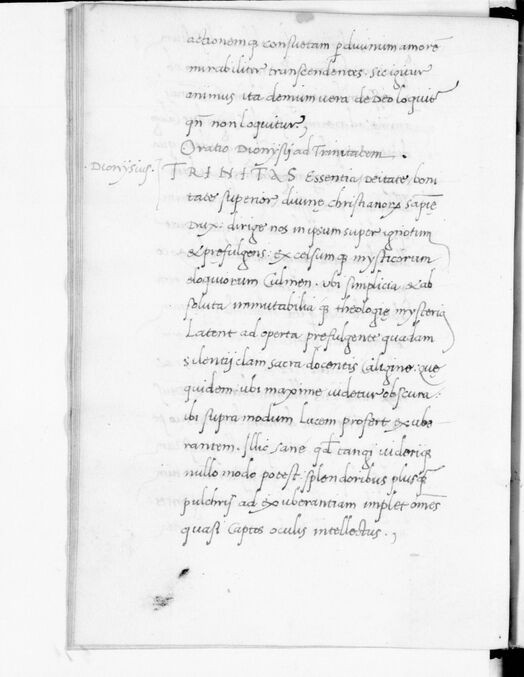 actionemq; consuetam p divinum amorē
mirabiliter transcendentes. Sic igitur
animus ita demum vera de Deo loquit
qn̄ non loquitur.
Oratio Dionysij ad Trinitatem.
Dionysius.
TRINITAS Essentia, Deitate, boni
tate superior divinę christianorȝ sapię
Dux: dirige nos in ipsum super ignotum
& pręfulgens: excelsumq; mysticorum
eloquiorum Culmen. ubi simplicia & ab
soluta immutabilia q; theologię mysteria
Latent ad operta prefulgente quadam
silentij clam sacra docentis Caligine: que
quidem ubi maxime videtur obscura:
ibi supra modum Lucem profert exube
rantem. Illic sane qd tangi viderique
nullo modo potest splendoribus plusq̄
pulchris ad exuberantiam implet omēs
quasi Captos oculis intellectus.